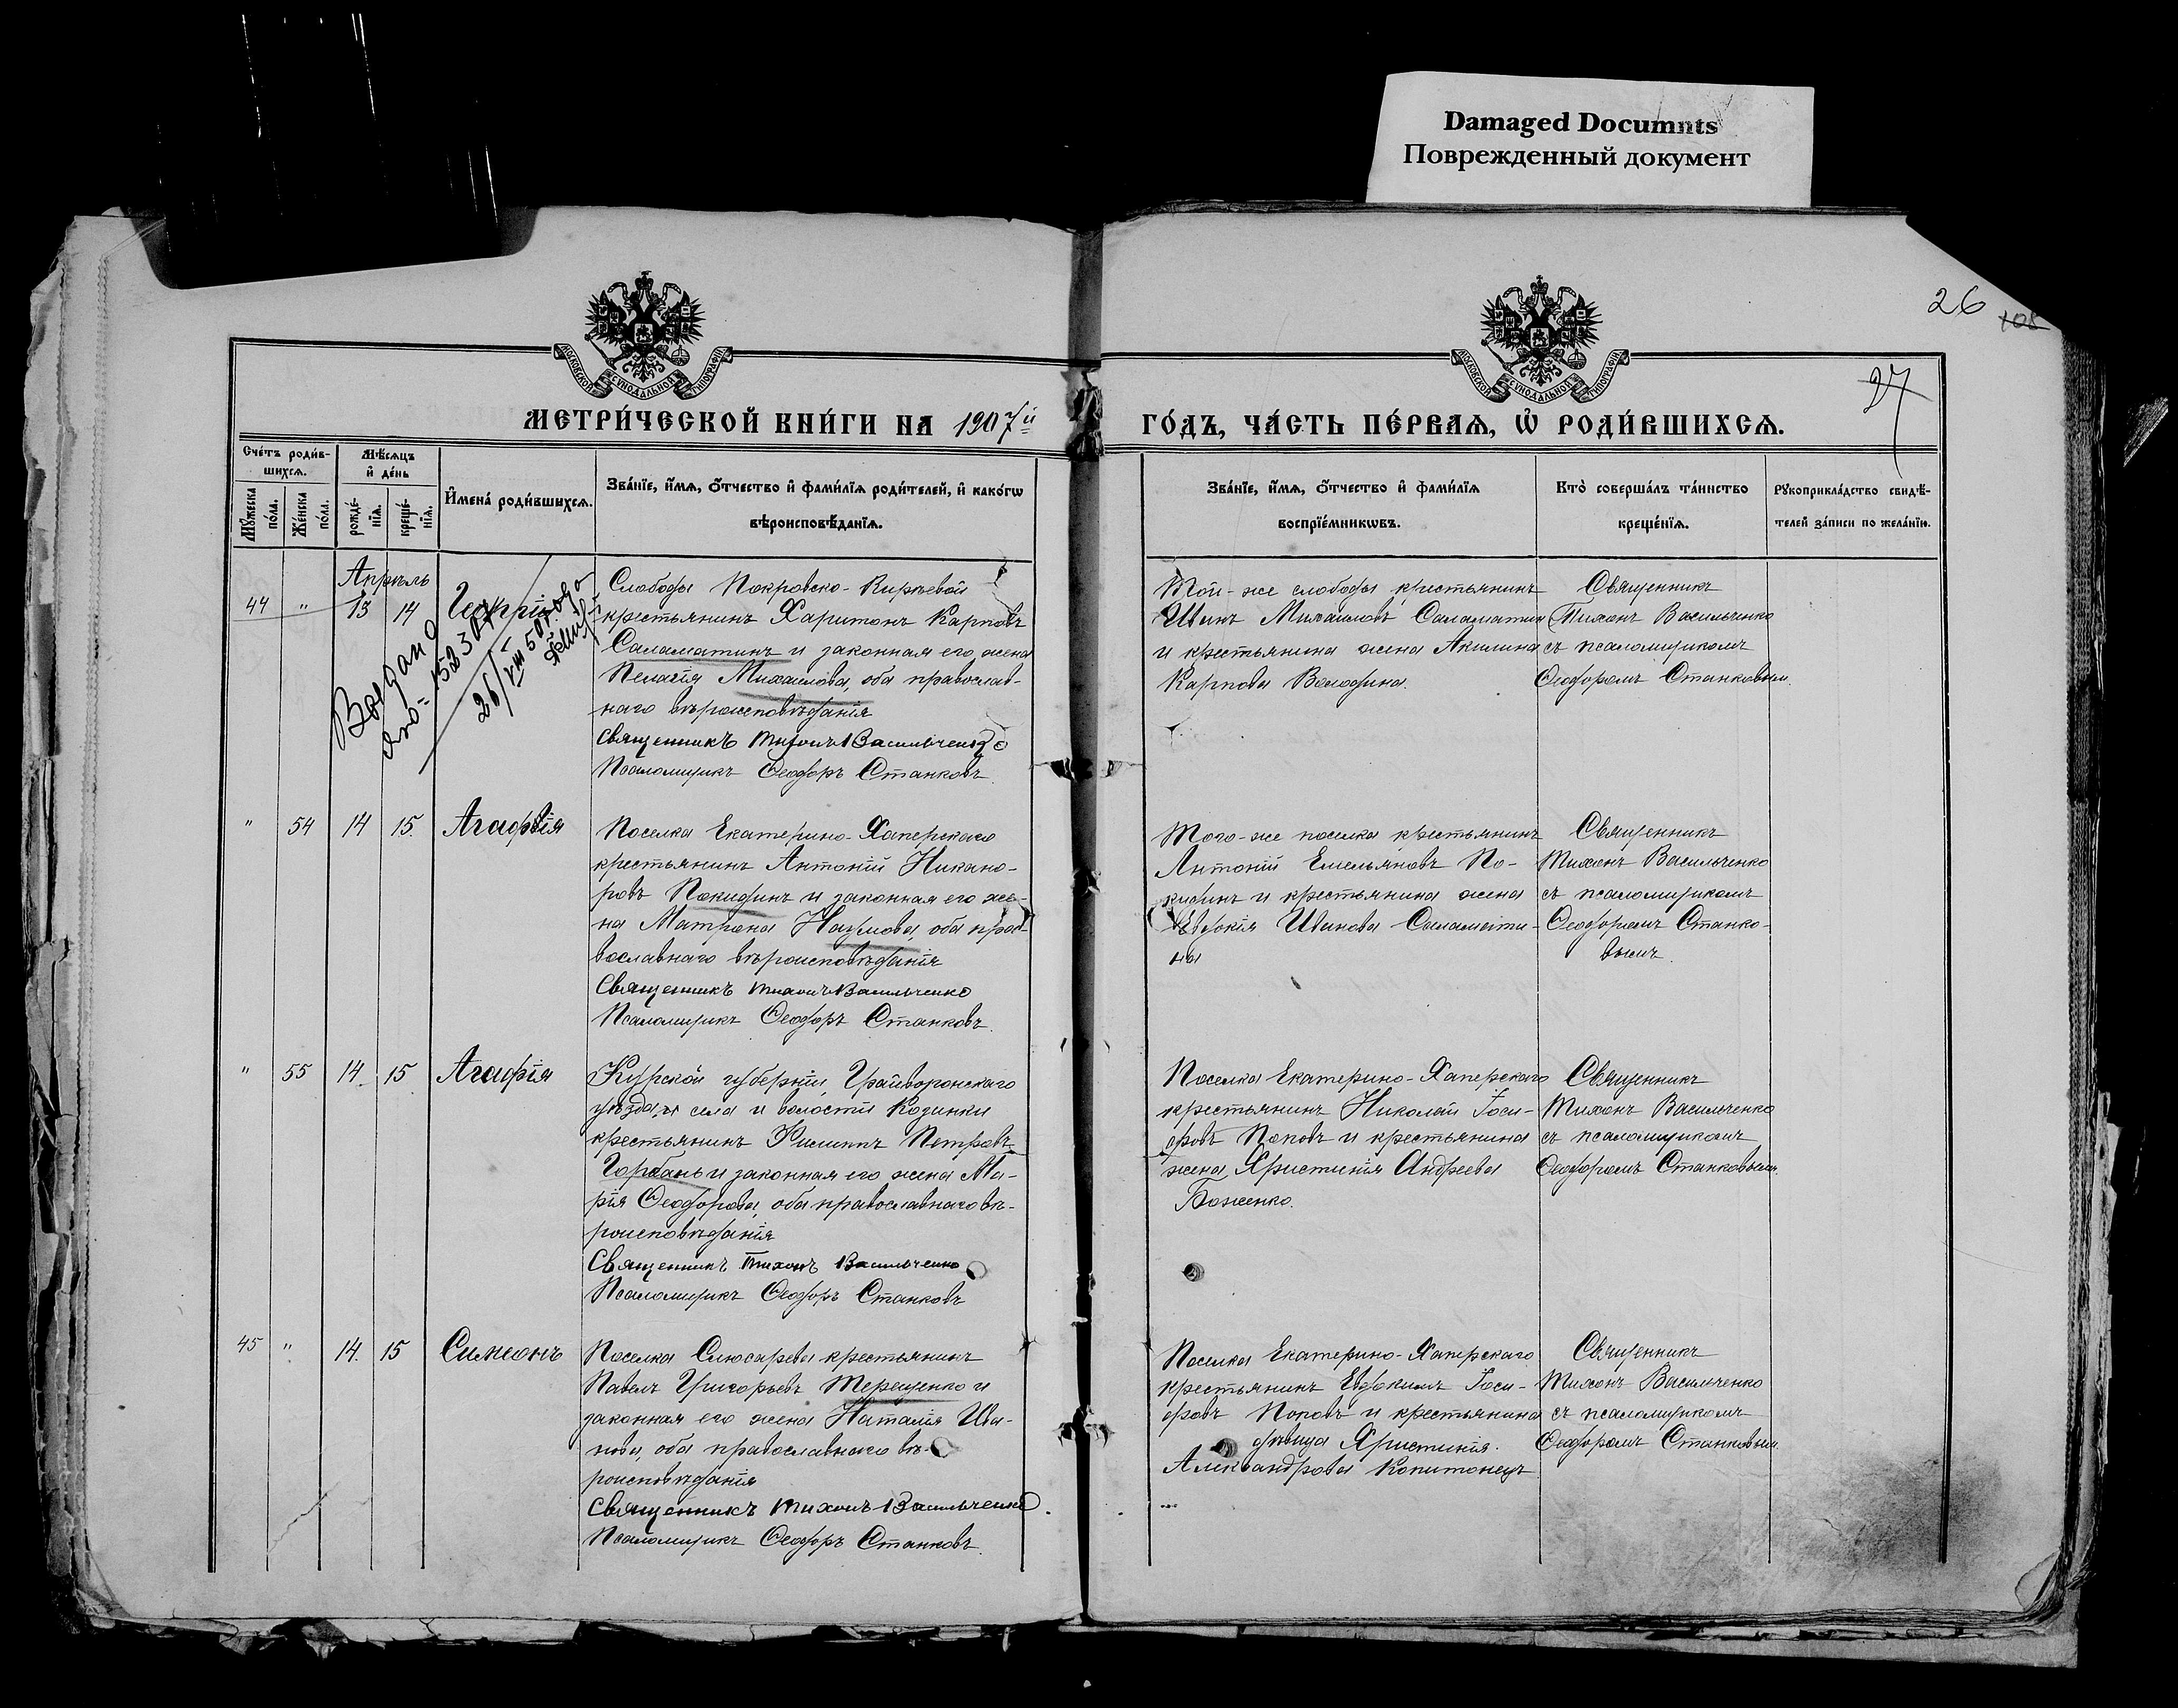 Damaged Documnts
Поврежденный документ
26
108
27
МОСКОВСКОЙ СѴНОДАЛЬНОЙ ТИПОГРАФІИ
МОСКОВСКОЙ СѴНОДАЛЬНОЙ ТИПОГРАФІИ
МЕТРИ́ЧЕСКОЙ КНИ́ГИ НА 1907й
ГО́ДЪ, ЧА́СТЬ ПЕ́РВАѦ, Ѡ҆ РОДИ́ВШИХСѦ.
Сче́тъ роди́в-
шихсѧ.
Мꙋ́жеска по́ла.
Же́нска по́ла.
Мѣ́сѧцъ
и҆ де́нь
рожде́-
нїѧ.
креще́-
нїѧ.
И҆мена̀ роди́вшихсѧ.
Зва́нїе, и҆́мѧ, ѻ҆́тчество и҆ фами́лїѧ роди́телей, и҆ како́гѡ
вѣроисповѣ́данїѧ.
Зва́нїе, и҆́мѧ, ѻ҆́тчество и҆ фами́лїѧ
воспрїе́мникѡвъ.
Кто̀ соверша́лъ та́инство
креще́нїѧ.
Рꙋкоприкла́дство свидѣ́-
телей за́писи по жела́нїю.
Апрѣль
44 " 13 14 Георгій
Выдано
26/VIII 50 г.
Слободы Покровско-Кирѣевой
крестьянинъ Харитонъ Карповъ
Саламатинъ и законная его жена
Пелагія Михаилова, оба православ-
наго вѣроисповѣданія
Священникъ Тихонъ Васильченко
Псаломщикъ Ѳеодоръ Станковъ.
Той-же слободы крестьянинъ
Иванъ Михаиловъ Саламатин
и крестьянина жена Акилина
Карпова Володина.
Священникъ
Тихонъ Васильченко
съ псаломщикомъ
Ѳеодоромъ Станковым.
" 54 14 15. Агафія
Поселка Екатерино-Хаперскаго
крестьянинъ Антоній Никано-
ровъ Покидинъ и законная его же-
на Матрона Наумова, оба пра-
вославнаго вѣроисповѣданія
Священникъ Тихонъ Васильченко
Псаломщикъ Ѳеодоръ Станковъ.
Того-же поселка крестьянинъ
Антоній Емельяновъ По-
кидинъ и крестьянина жена
Евдокія Иванова Саламати-
на
Священникъ
Тихонъ Васильченко
съ псаломщикомъ
Ѳеодоромъ Станко-
вымъ.
" 55 14. 15 Агафія
Курской губерніи, Грайворонскаго
уѣзда, села и волости Козинки
крестьянинъ Филиппъ Петровъ
Горбань и законная его жена Ма-
рія Ѳеодорова, оба православнаго вѣ-
роисповѣданія
Священникъ Тихонъ Васильченко
Псаломщикъ Ѳеодоръ Станковъ
Поселка Екатерино-Хаперскаго
крестьянинъ Николай Іоси-
фовъ Поповъ и крестьянина
жена Христинія Андреева
Боженко.
Священникъ
Тихонъ Васильченко
съ псаломщикомъ
Ѳеодоромъ Станковымъ.
45 " 14. 15 Симеонъ
Поселка Слюсарева крестьянинъ
Павелъ Григорьевъ Терещенко и
законная его жена Наталія Ива-
нова, оба православнаго вѣ-
роисповѣданія
Священникъ Тихонъ Васильченко
Псаломщикъ Ѳеодоръ Станковъ.
Поселка Екатерино-Хаперскаго
крестьянинъ Евдокимъ Іоси-
фовъ Поповъ и крестьянина
дѣвица Христинія
Александрова Копитонецъ
Священникъ
Тихонъ Васильченко
съ псаломщикомъ
Ѳеодоромъ Станковым.